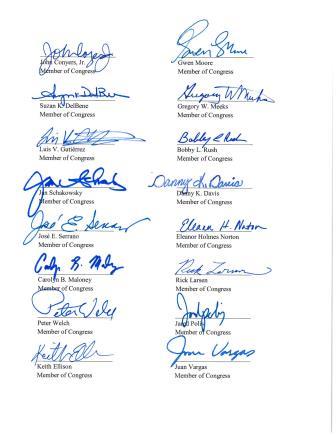 John Conyers, Jr.
Member of Congress
Gwen Moore
Member of Congress
Suzan K. DelBene
Member of Congress
Gregory W. Meeks
Member of Congress
Luis V. Gutiérrez
Member of Congress
Bobby L. Rush
Bobby L. Rush
Member of Congress
Jan Schakowsky
Member of Congress
Danny K. Davis
Danny K. Davis
Member of Congress
José E. Serrano
José E. Serrano
Member of Congress
Eleanor H. Norton
Eleanor Holmes Norton
Member of Congress
Carolyn B. Maloney
Member of Congress
Rick Larsen
Rick Larsen
Member of Congress
Peter Welch
Peter Welch
Member of Congress
Jared Polis
Member of Congress
Keith Ellison
Member of Congress
Juan Vargas
Juan Vargas
Member of Congress